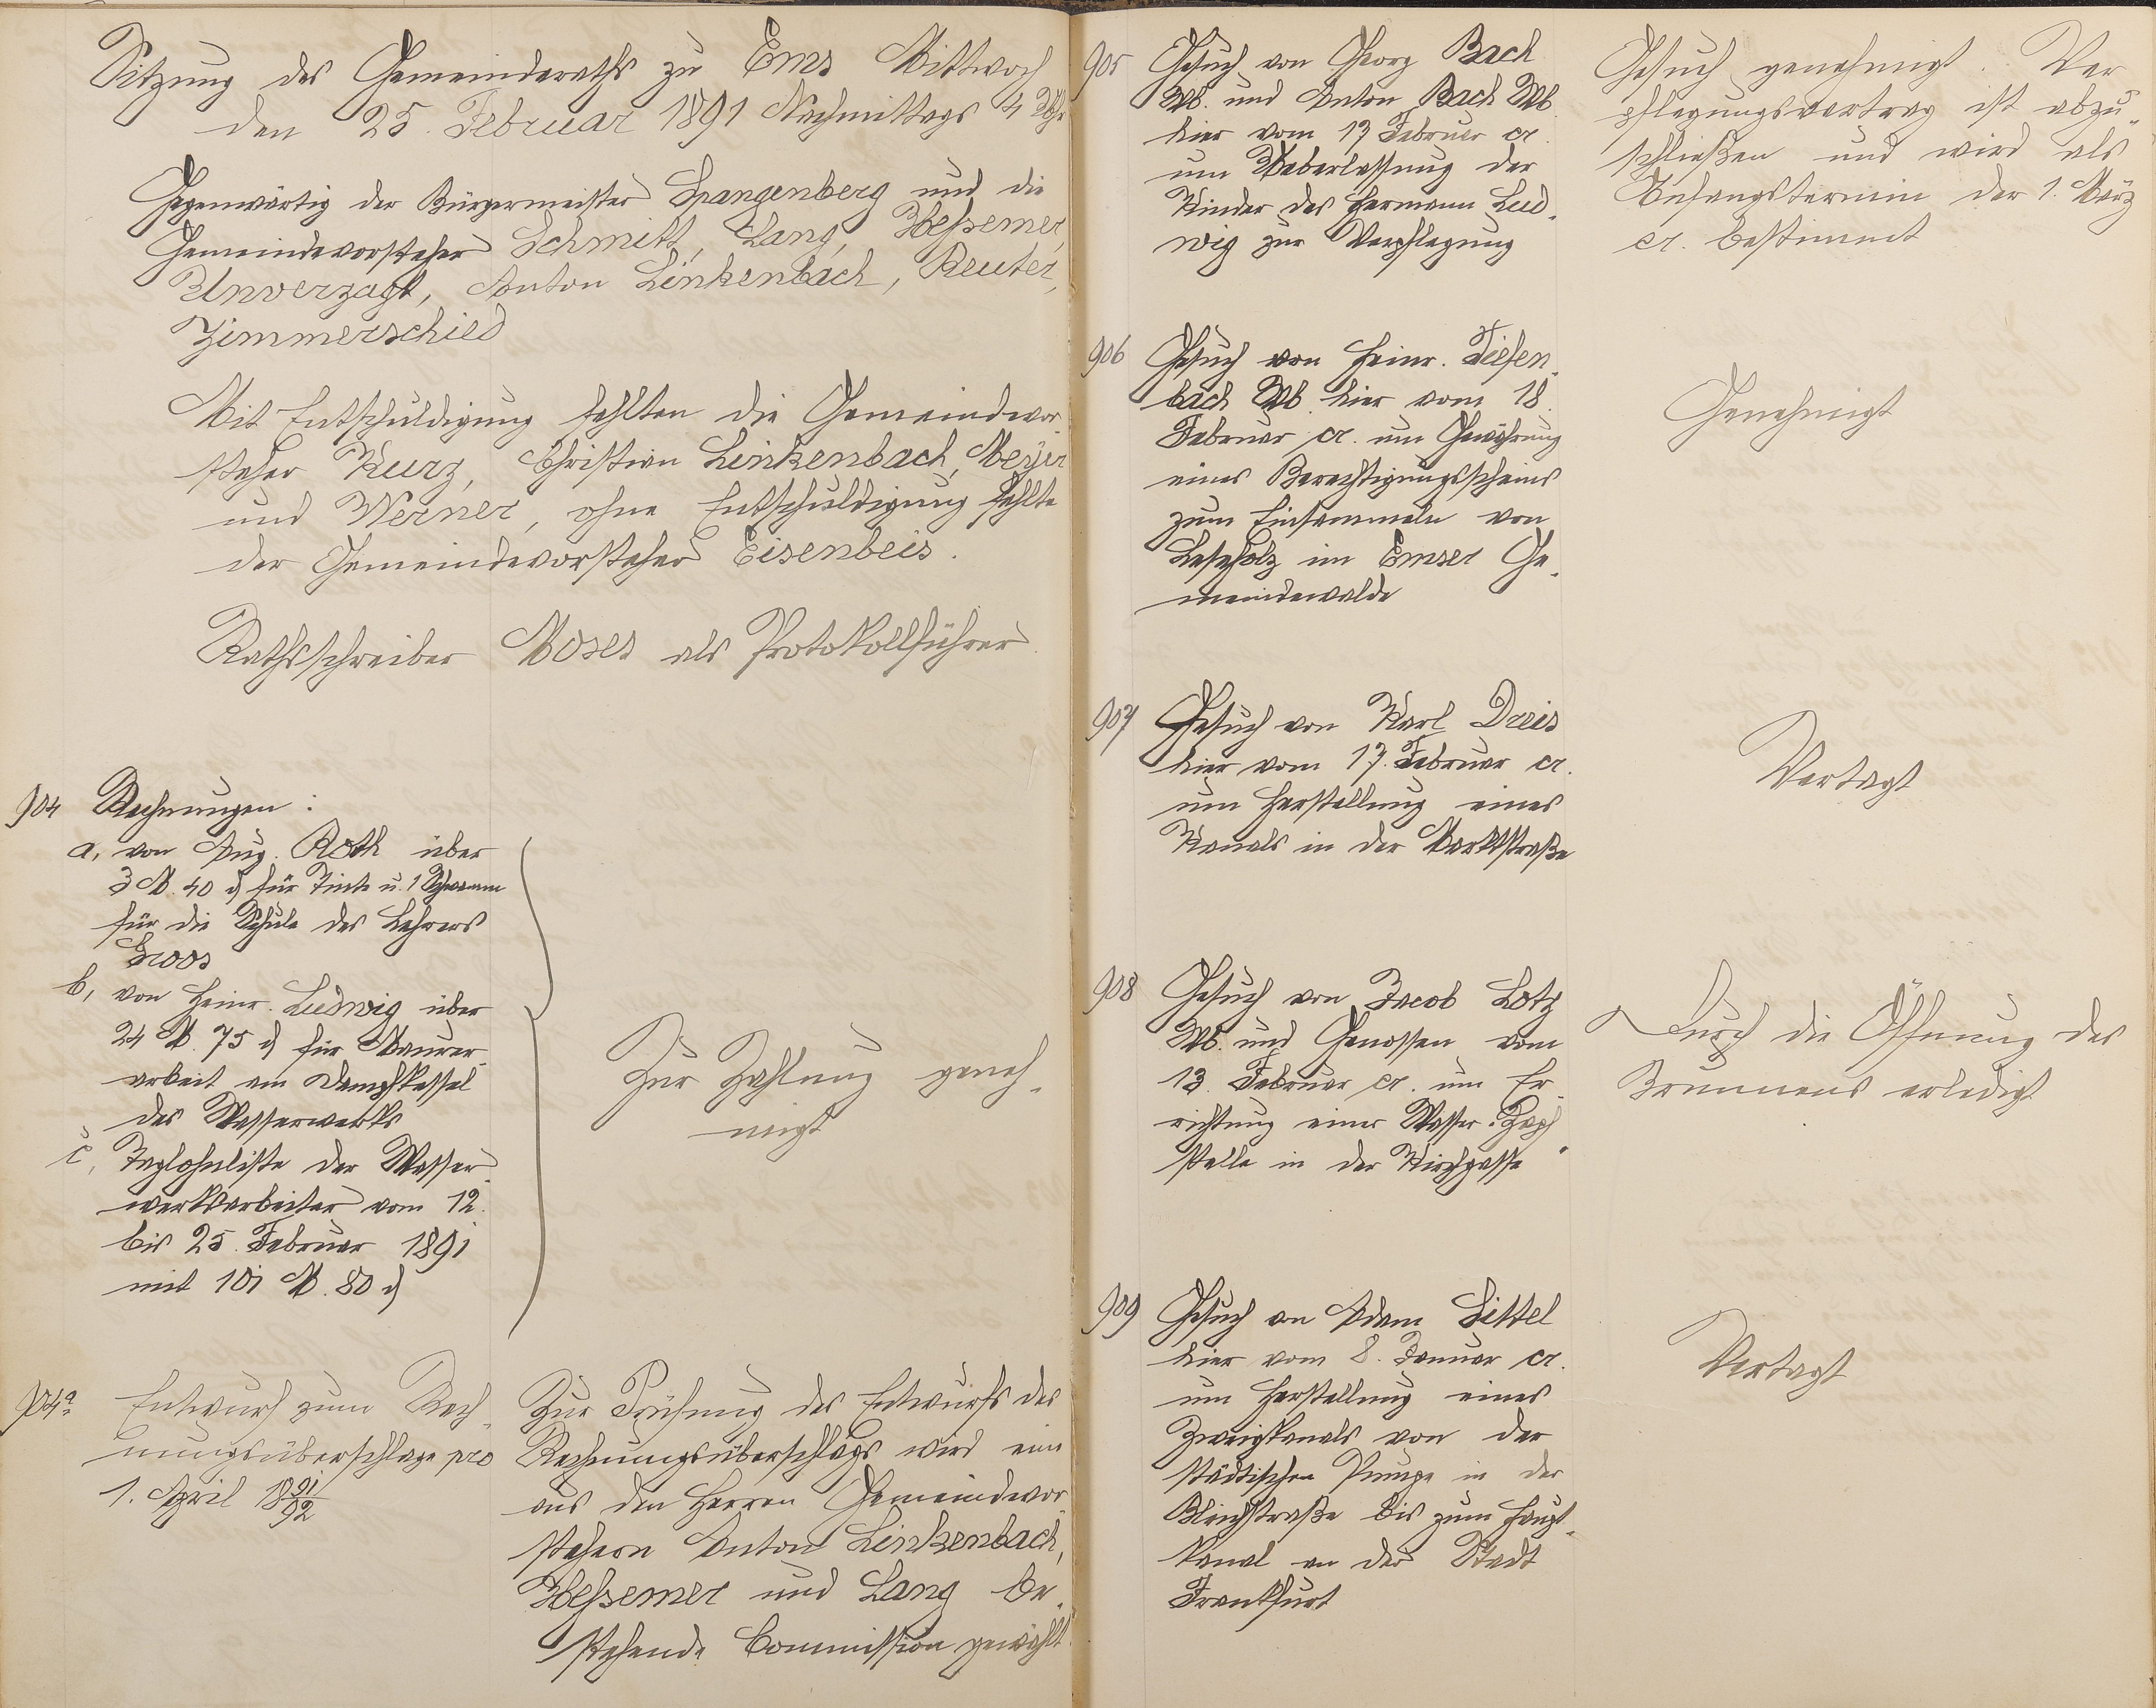 Sitzung des Gemeinderaths zu Ems Mittwoch
den 25. Februar 1891 Nachmittags 4 Uhr
Gegenwärtig der Bürgermeister Spangenberg und die
Gemeindevorsteher Schmitt, Lang, Heßemer,
Unverzagt, Anton Linkenbach, Reuter,
Zimmerschied
Mit Entschuldigung fehlten die Gemeindevor
steher Kurz, Christian Linkenbach, Meyer
und Werner, ohne Entschuldigung fehlte
der Gemeindevorsteher Eisenbeis.
Rathsschreiber Moses als Protokollführer.
904 Rechnungen:
a, von Aug. Roth über
3 M. 40 ₰ für Tinte u. 1 Schwamm
für die Schule des Lehrers
Groos
b, von Heinr. Ludwig über
24 M. 75 ₰ für Maurer-
arbeit am Dampfkessel
des Wasserwerks
c, Taglohnliste der Wasser-
werksarbeiter vom 12.
bis 25. Februar 1891
mit 101 M. 80 ₰
Zur Zahlung geneh-
migt
904a. Entwurf zum Rech-
nungsüberschlage pro
1. April 1891/92
Zur Prüfung des Entwurfs des
Rechnungsüberschlags wird eine
aus den Herren Gemeindevor-
stehern Anton Linkenbach,
Heßemer und Lang be-
stehende Commission gewählt.
905 Gesuch von Georg Bach
Wb. und Anton Bach Wb.
hier vom 17 Februar cr.
um Ueberlassung der
Kinder des Hermann Lud-
wig zur Verpflegung
Gesuch genehmigt. Ver
pflegungsvertrag ist abzu-
schließen und wird als
Anfangstermin der 1. März
cr. bestimmt
906 Gesuch von Heinr. Tiefen-
bach Wb. hier vom 18.
Februar cr. um Gewährung
eines Berechtigungsscheins
zum Einsammeln von
Leseholz im Emser Ge-
meindewalde
Genehmigt
907 Gesuch von Karl Dreis
hier vom 17. Februar cr.
um Herstellung eines
Kanals in der Marktstraße
Vertagt
908 Gesuch von Jacob Lotz
Wb. und Genossen vom
13. Februar cr. um Er-
richtung einer Wasser-Zapf-
stelle in der Kirchgasse
Durch die Öffnung des
Brunnens erledigt
909 Gesuch von Adam Sittel
hier vom 8. Januar cr.
um Herstellung eines
Zweigkanals von der
städtischen Pumpe in der
Bleichstraße bis zum Haupt-
kanal an der Stadt
Frankfurt
Vertagt